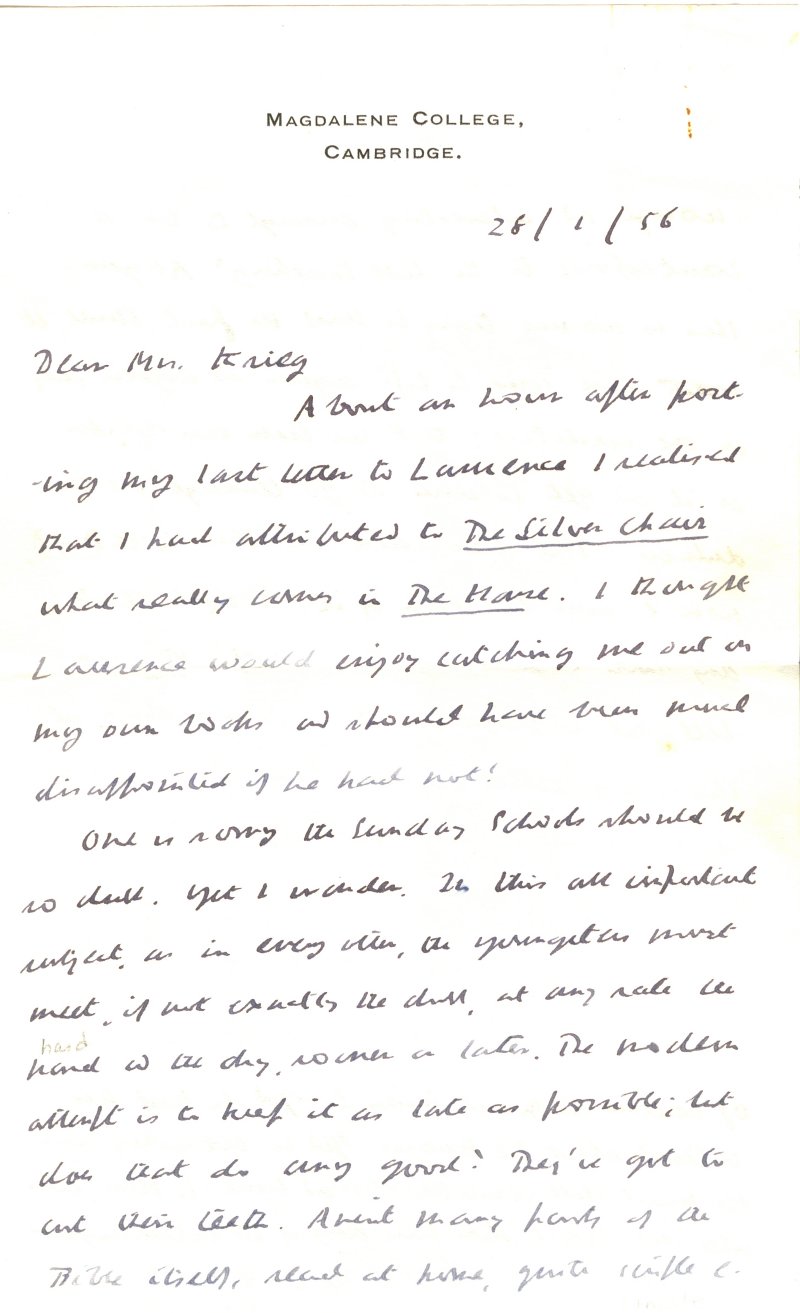 MAGDALENE COLLEGE,
CAMBRIDGE.
28/1/56
Dear Mrs. Krieg
About an hour after post-
-ing my last letter to Laurence I realised
that I had attributed to The Silver Chair
what really comes in The Horse. I thought
Laurence would enjoy catching me out in
my own books and should have been much
disappointed if he had not!
One is sorry the Sunday Schools should be
so dull. Yet I wonder. In this all important
subject, as in every other, the youngsters must
meet, if not exactly the dull, at any rate the
hard
hard and the dry, sooner or later. The modern
attempt is to keep it as late as possible; but
does that do any good? They've got to
cut their teeth. Aren't many parts of the
Bible itself, read at home, quite simple &